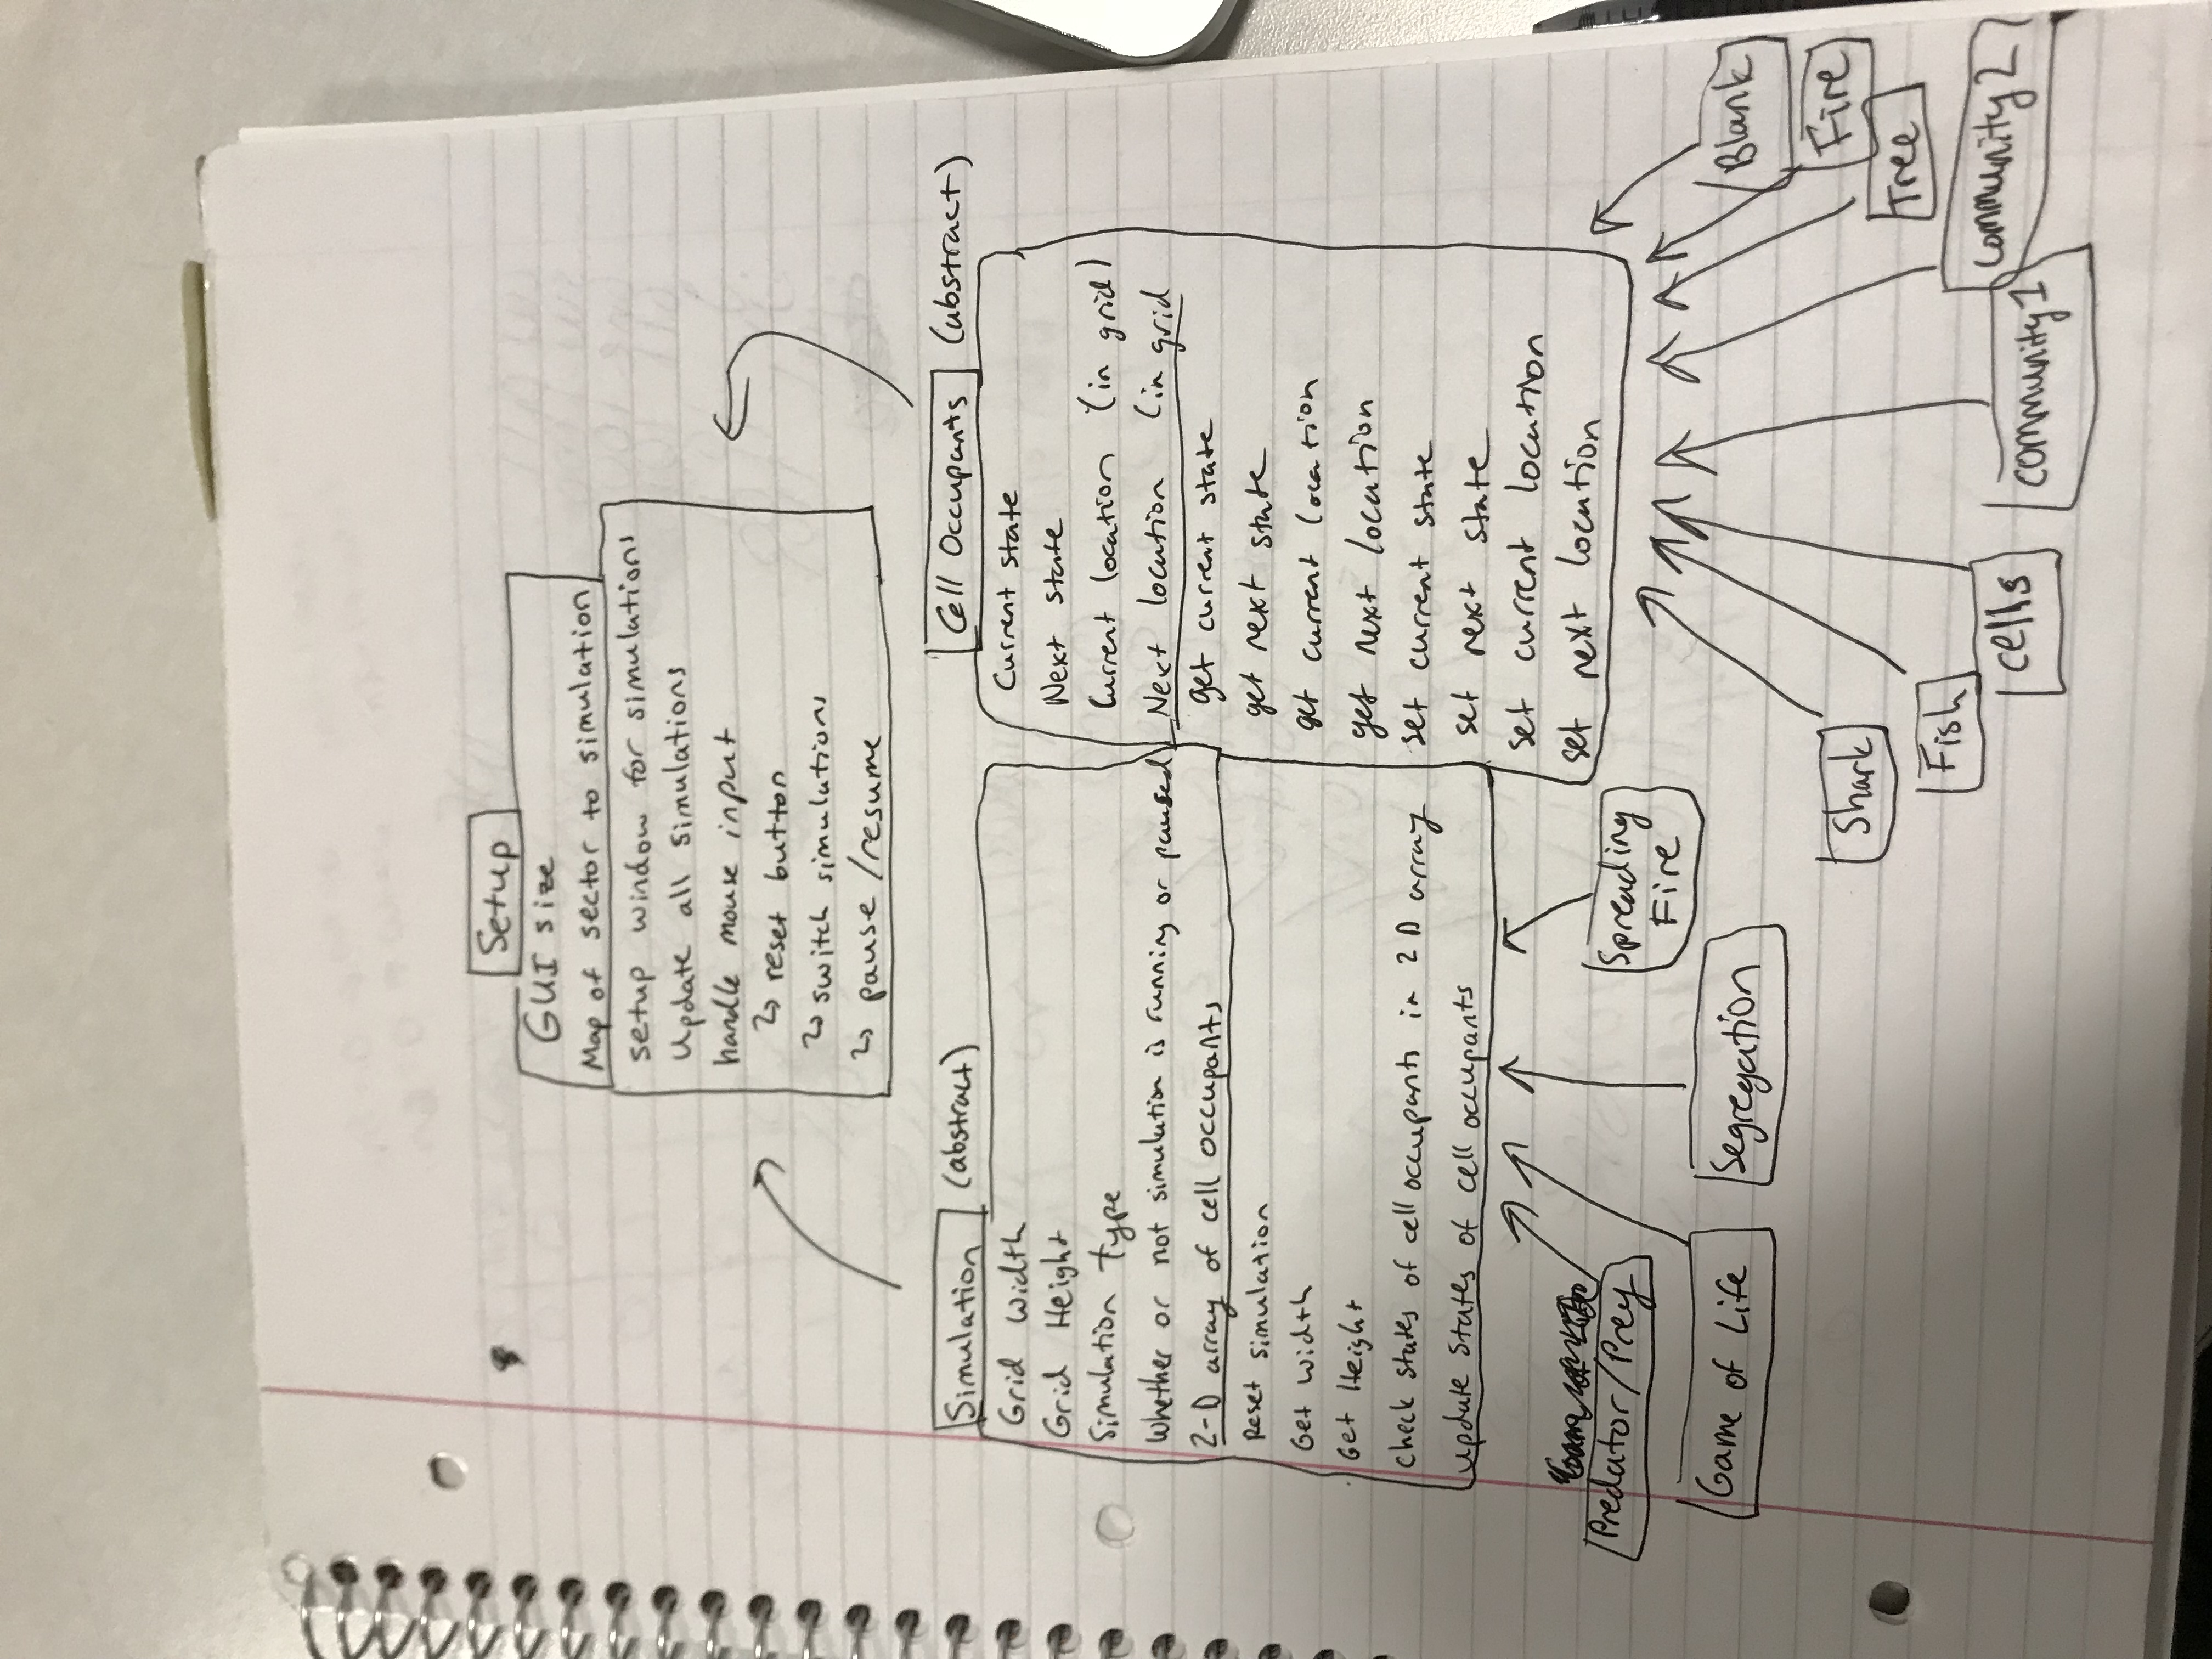 Setup
GUI size
Map of sector to simulation
setup window for simulations
Update all simulations
handle mouse input
↳ reset button
↳ switch simulations
↳ pause/resume
Simulation (abstract)
Grid Width
Grid Height
Simulation type
Whether or not simulation is running or paused
2-D array of cell occupants
Reset simulation
Get width
Get Height
check states of cell occupants in 2D array
update states of cell occupants
Predator/Prey
Game of Life
Segregation
Spreading
Fire
Cell Occupants (abstract)
Current state
Next state
Current location (in grid)
Next location (in grid
get current state
get next state
get current location
get next location
set current state
set next state
set current location
set next location
Shark
Fish
cells
community 1
community 2
Tree
Fire
Blank